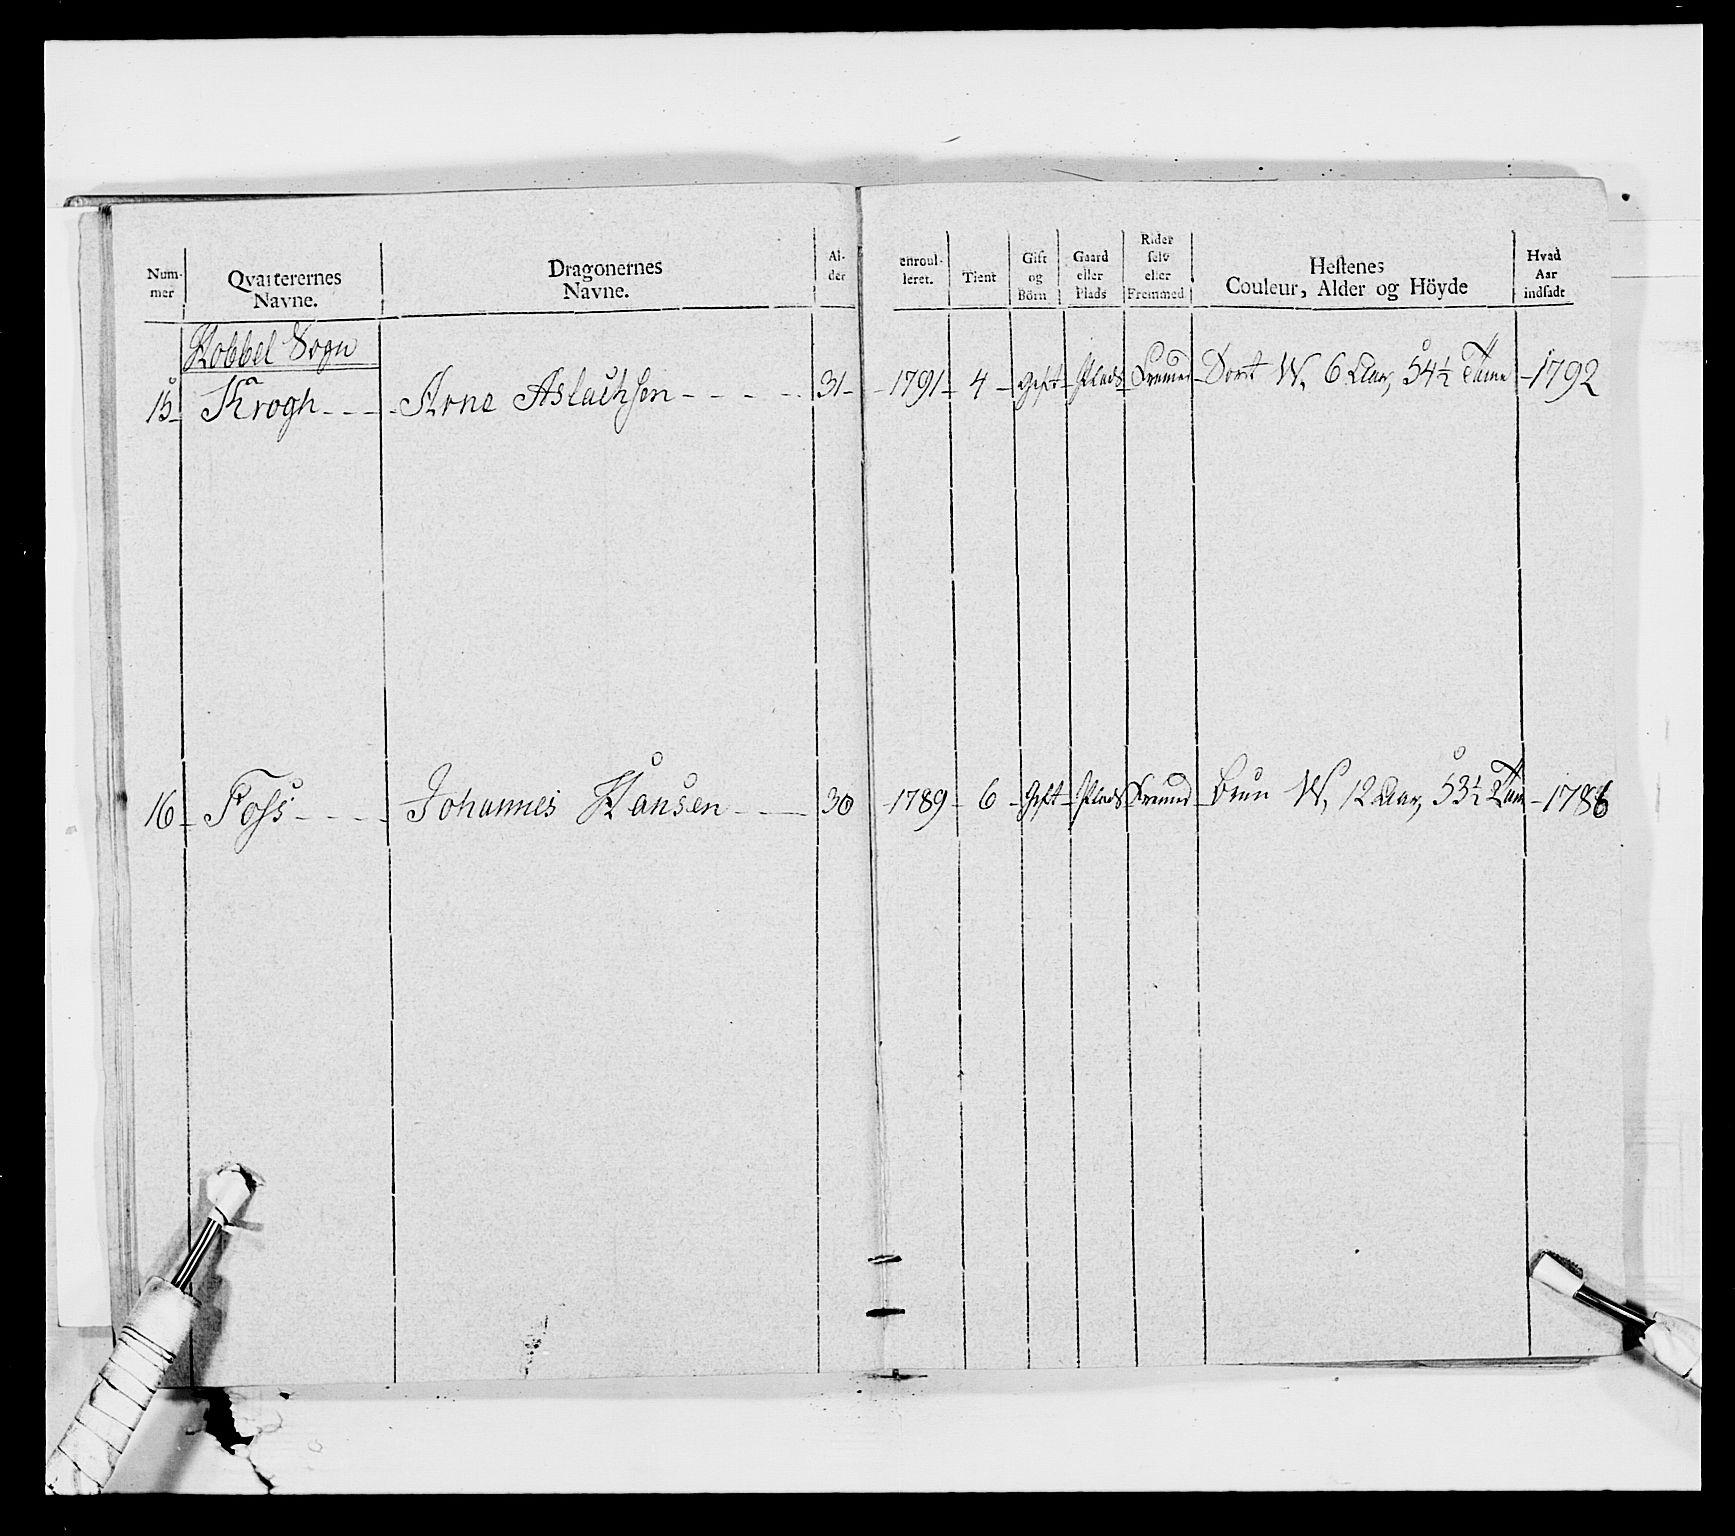 Num- mer
Qvarterernes Navne.
Dragonernes Navne.
Al- der
enroul- leret.
Tient
Gift og Börn
Gaard eller Plads
Rider selv eller Fremmed
Hestenes Couleur, Alder og Höyde
Hvad Aar indsadt
Kobbel Sogn
15 Krogh Arne Aslachsen 31 1791 4 Gift Plads Fremed W, 6 Aar, 54½ Tome 1792
16 Foss Johannes Hansen 30 1789 6 Gift Plads Fremd Brun W, 12 Aar, 53½ Tom 1786